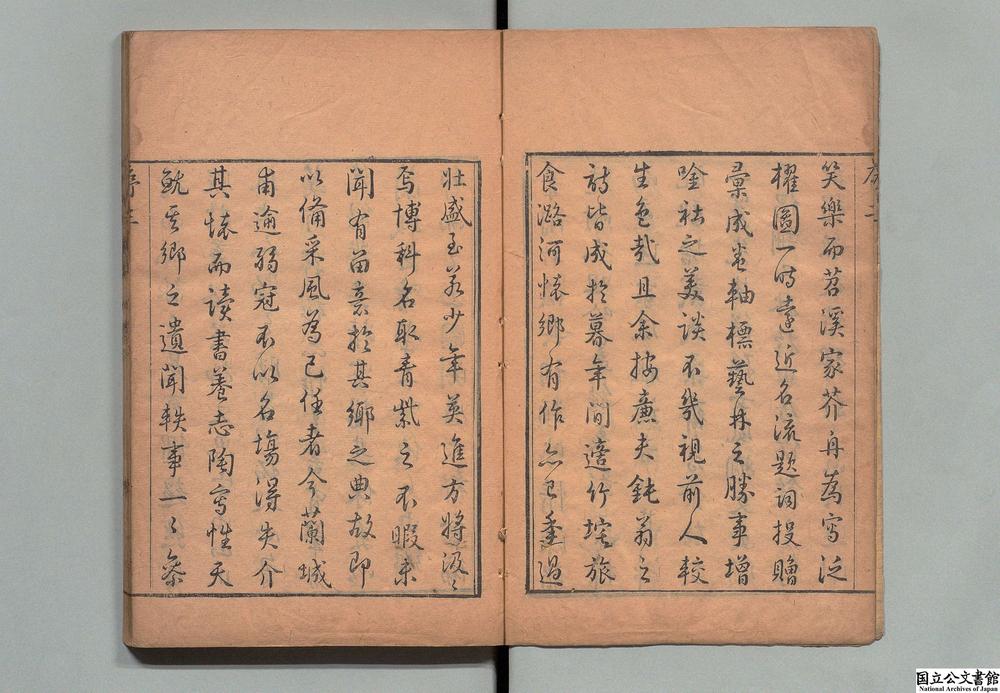 序二
笑樂而苕溪家芥舟為寫泛
櫂圖一時遠近名流題詞投贈
彙成卷軸標藝林之勝事增
唫社之美談不幾視前人較
生色哉且余按廉夫鈍翁之
詩皆成於暮年間遊竹垞旅
食潞河懷鄉有作亦已壷過
壯盛至若少年英進方將汲〻
焉博科名取青紫之不暇未
聞有留意於其鄉之典故即
以備采風為己任者今蘭城
甫逾弱冠不以名場得失介
其懷而讀書養志陶寫性天
就其鄉之遺聞軼事一〻叅
序三
国立公文書館
National Archives of Japan